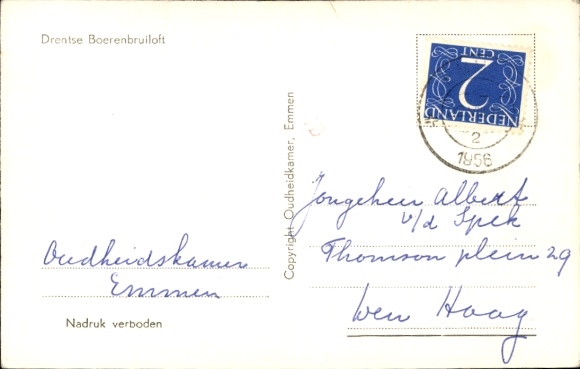 Drentse Boerenbruiloft
2
CENT
NEDERLAND
2
1956
Copyright Oudheidkamer, Emmen
Jongeheer Albert
v/d Spek
Thomson plein 29
Den Haag
Oudheidskamer
Emmen
Nadruk verboden